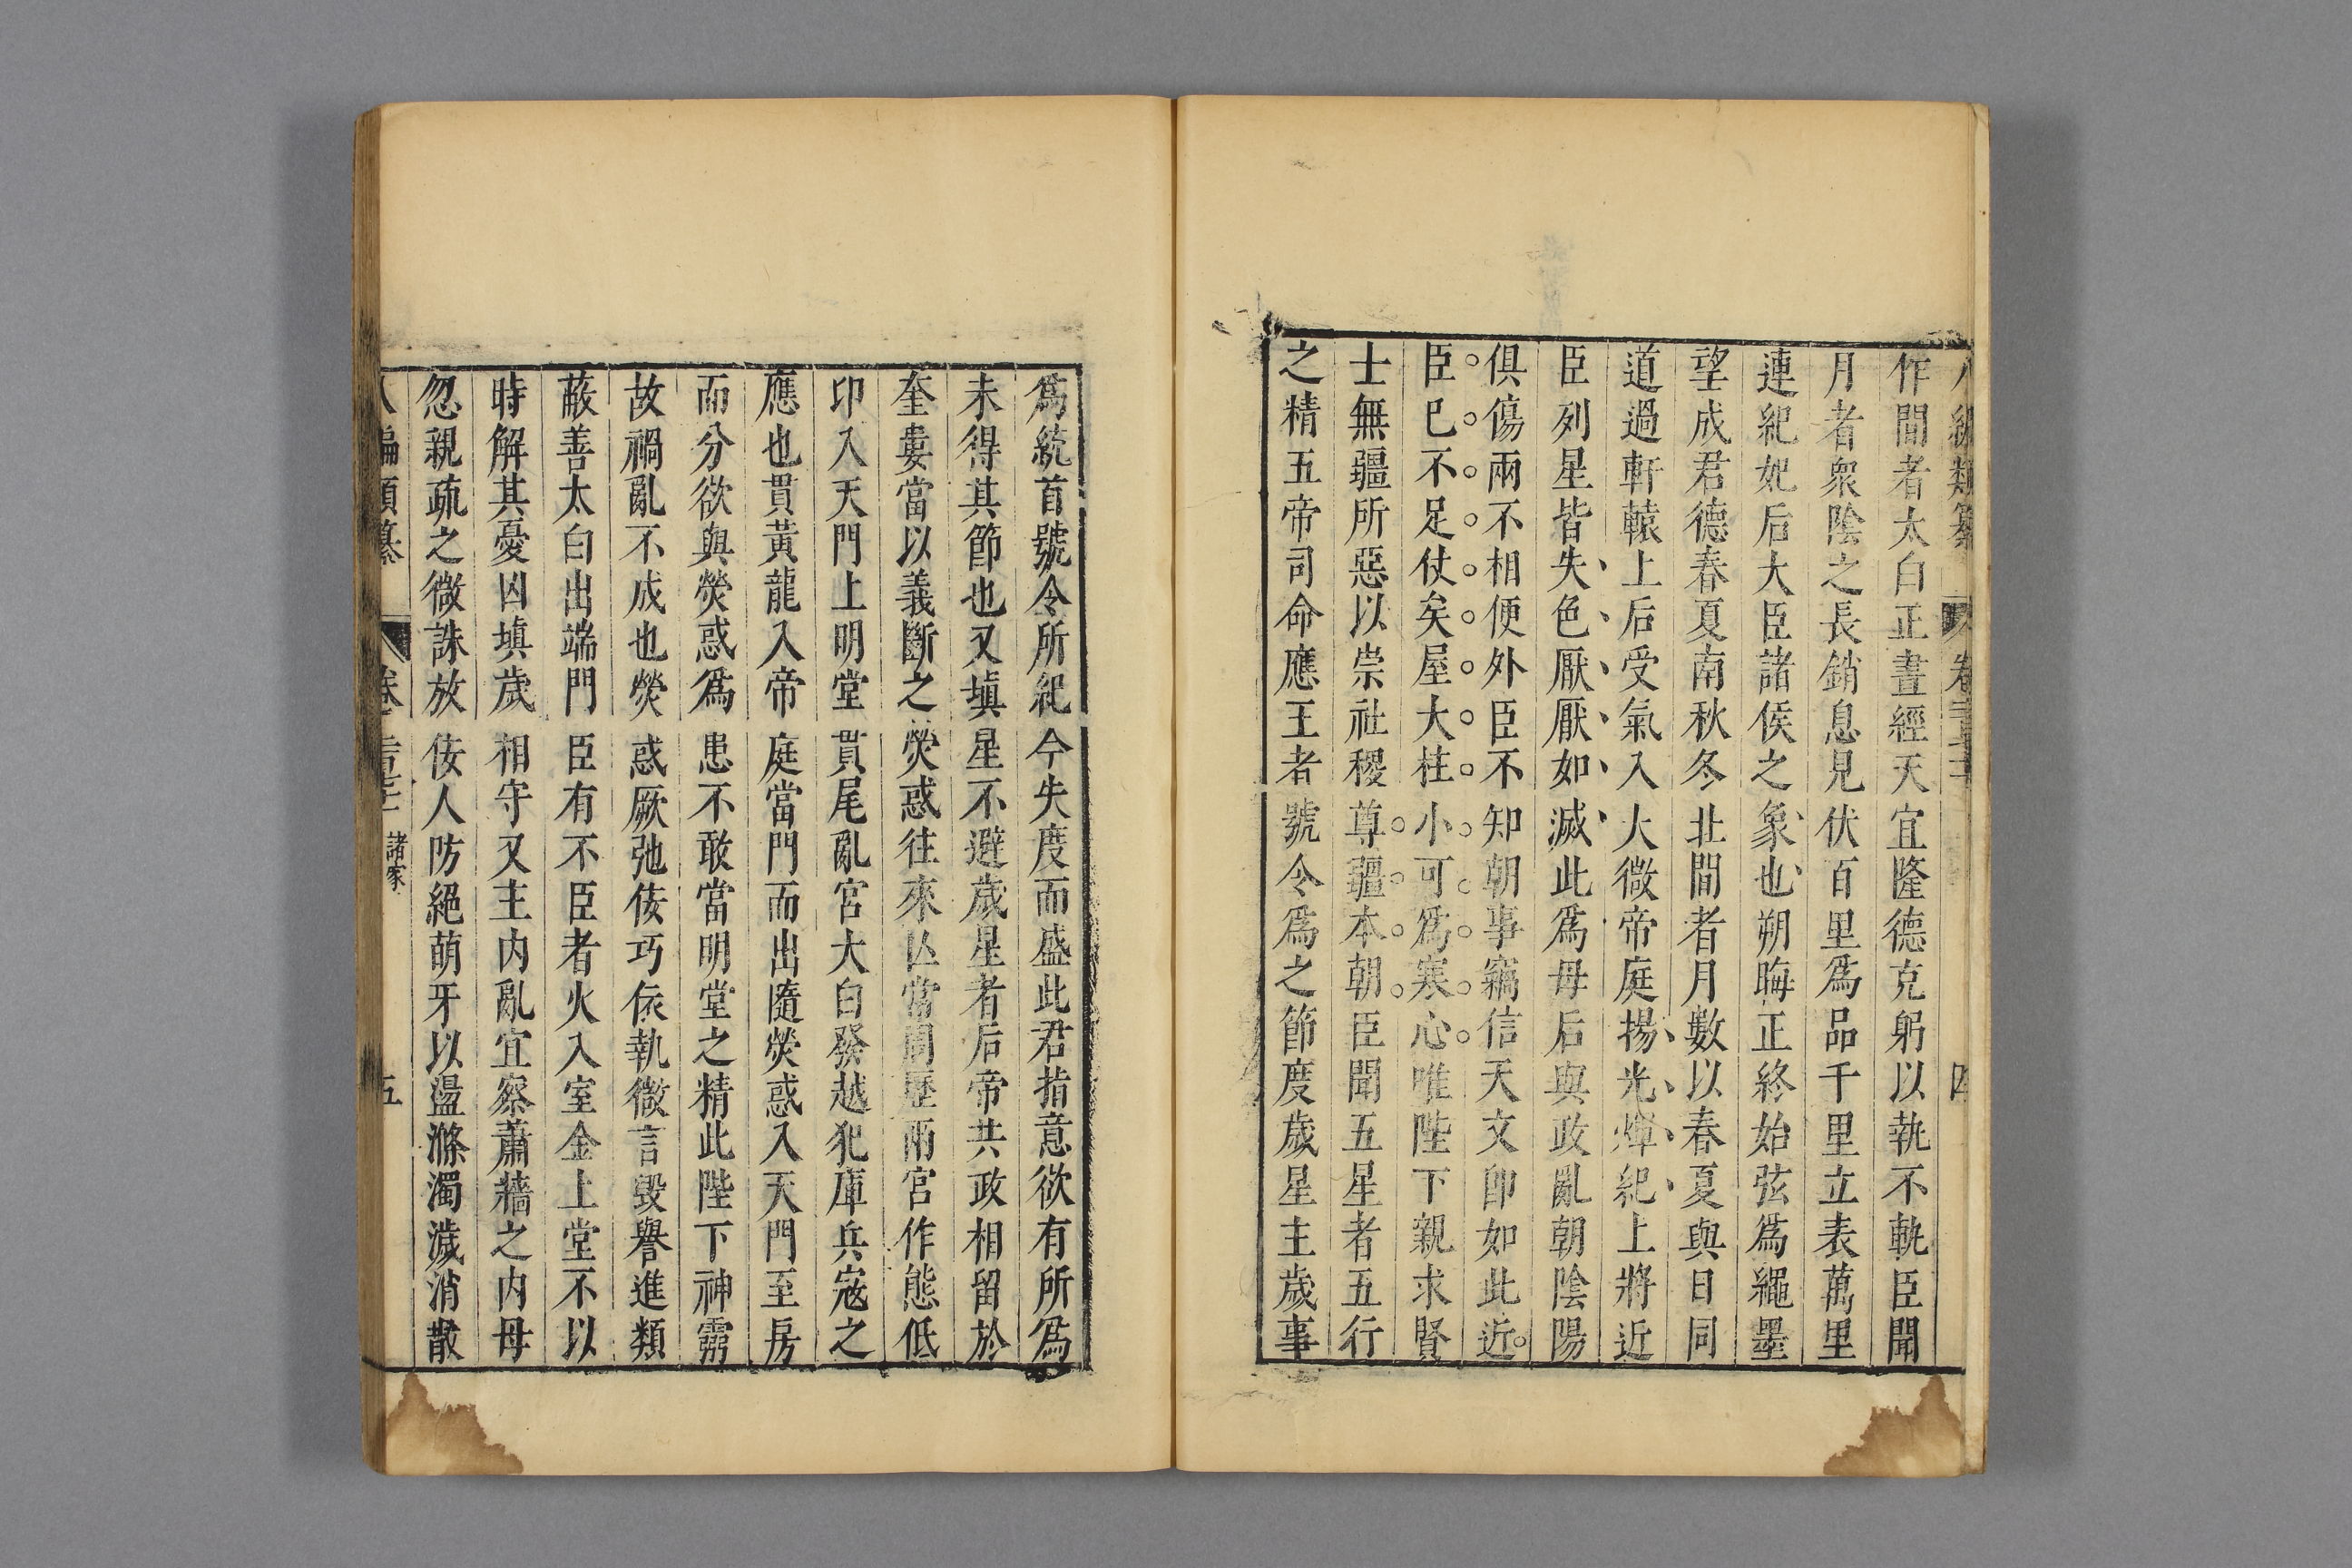 作間者太白正晝經天宜隆德克躬以執不軌臣聞
月者衆陰之長銷息見伏百里爲品千里立表萬里
連紀妃后大臣諸侯之象也朔晦正終始弦爲繩墨
望成君德春夏南秋冬北間者月數以春夏與日同
道過軒轅上后受氣入大微帝庭揚光煇紀上將近
臣列星皆失色厭厭如滅此爲母后與政亂朝陰陽
俱傷兩不相便外臣不知朝事竊信天文卽如此近
臣已不足仗矣屋大柱小可爲寒心唯陛下親求賢
士無疆所惡以崇社稷尊疆本朝臣聞五星者五行
之精五帝司命應王者號令爲之節度歲星主歲事
爲統首號令所紀今失度而盛此君指意欲有所爲
未得其節也又塡星不避歲星者后帝共政相留於
奎婁當以義斷之熒惑往來亾常周歷兩宮作態低
卬入天門上明堂貫尾亂宮大白發越犯庫兵寇之
應也貫黃龍入帝庭當門而出隨熒惑入天門至房
而分欲與熒惑爲患不敢當明堂之精此陛下神靈
故禍亂不成也熒惑厥弛佞巧依執微言毀譽進類
蔽善太白出端門臣有不臣者火入室金上堂不以
時解其憂凶塡歲相守又主內亂宜察蕭牆之內毋
忽親疏之微誅放佞人防絕萌牙以盪滌濁濊消散
諸家
五